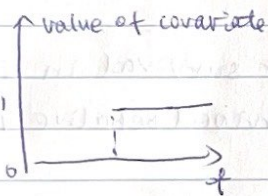 value of covariate
1
0
t